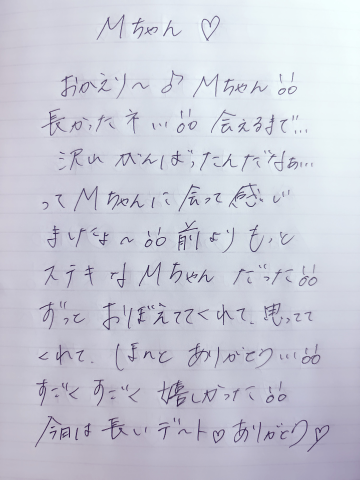 Mちゃん ♡
おかえり〜♪ Mちゃん
長かったネ… 会えるまで…
沢山 がんばったんだなぁ…
ってMちゃんに会って感じ
ましたよ〜 前よりもっと
ステキなMちゃんだった
ずっと おぼえててくれて、思ってて
くれて、ほんと ありがとう…
すごく すごく 嬉しかった
今日は長いデート♡ありがとう♡